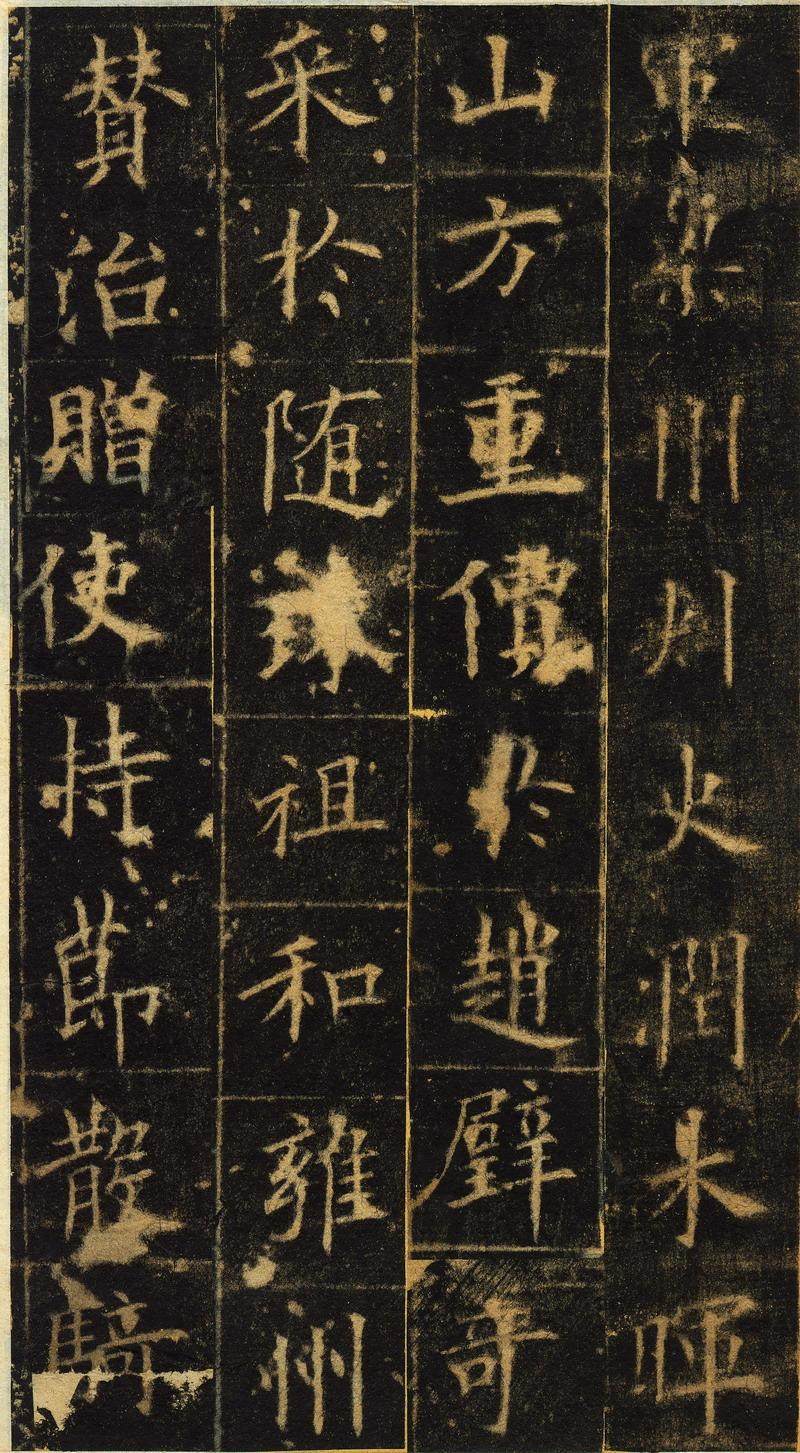 川川火潤木暉
山方重價於趙璧奇
采於随祖和雍州
贊治贈使持節散騎